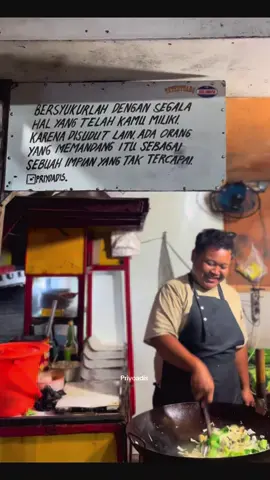 BERSYUKURLAH DENGAN SEGALA
HAL YANG TELAH KAMU MILIKI.
KARENA DISUDUT LAIN, ADA ORANG
YANG MEMANDANG ITU SEBAGAI
SEBUAH IMPIAN YANG TAK TERCAPAI.
PRIYOADIS_
Priyoadis